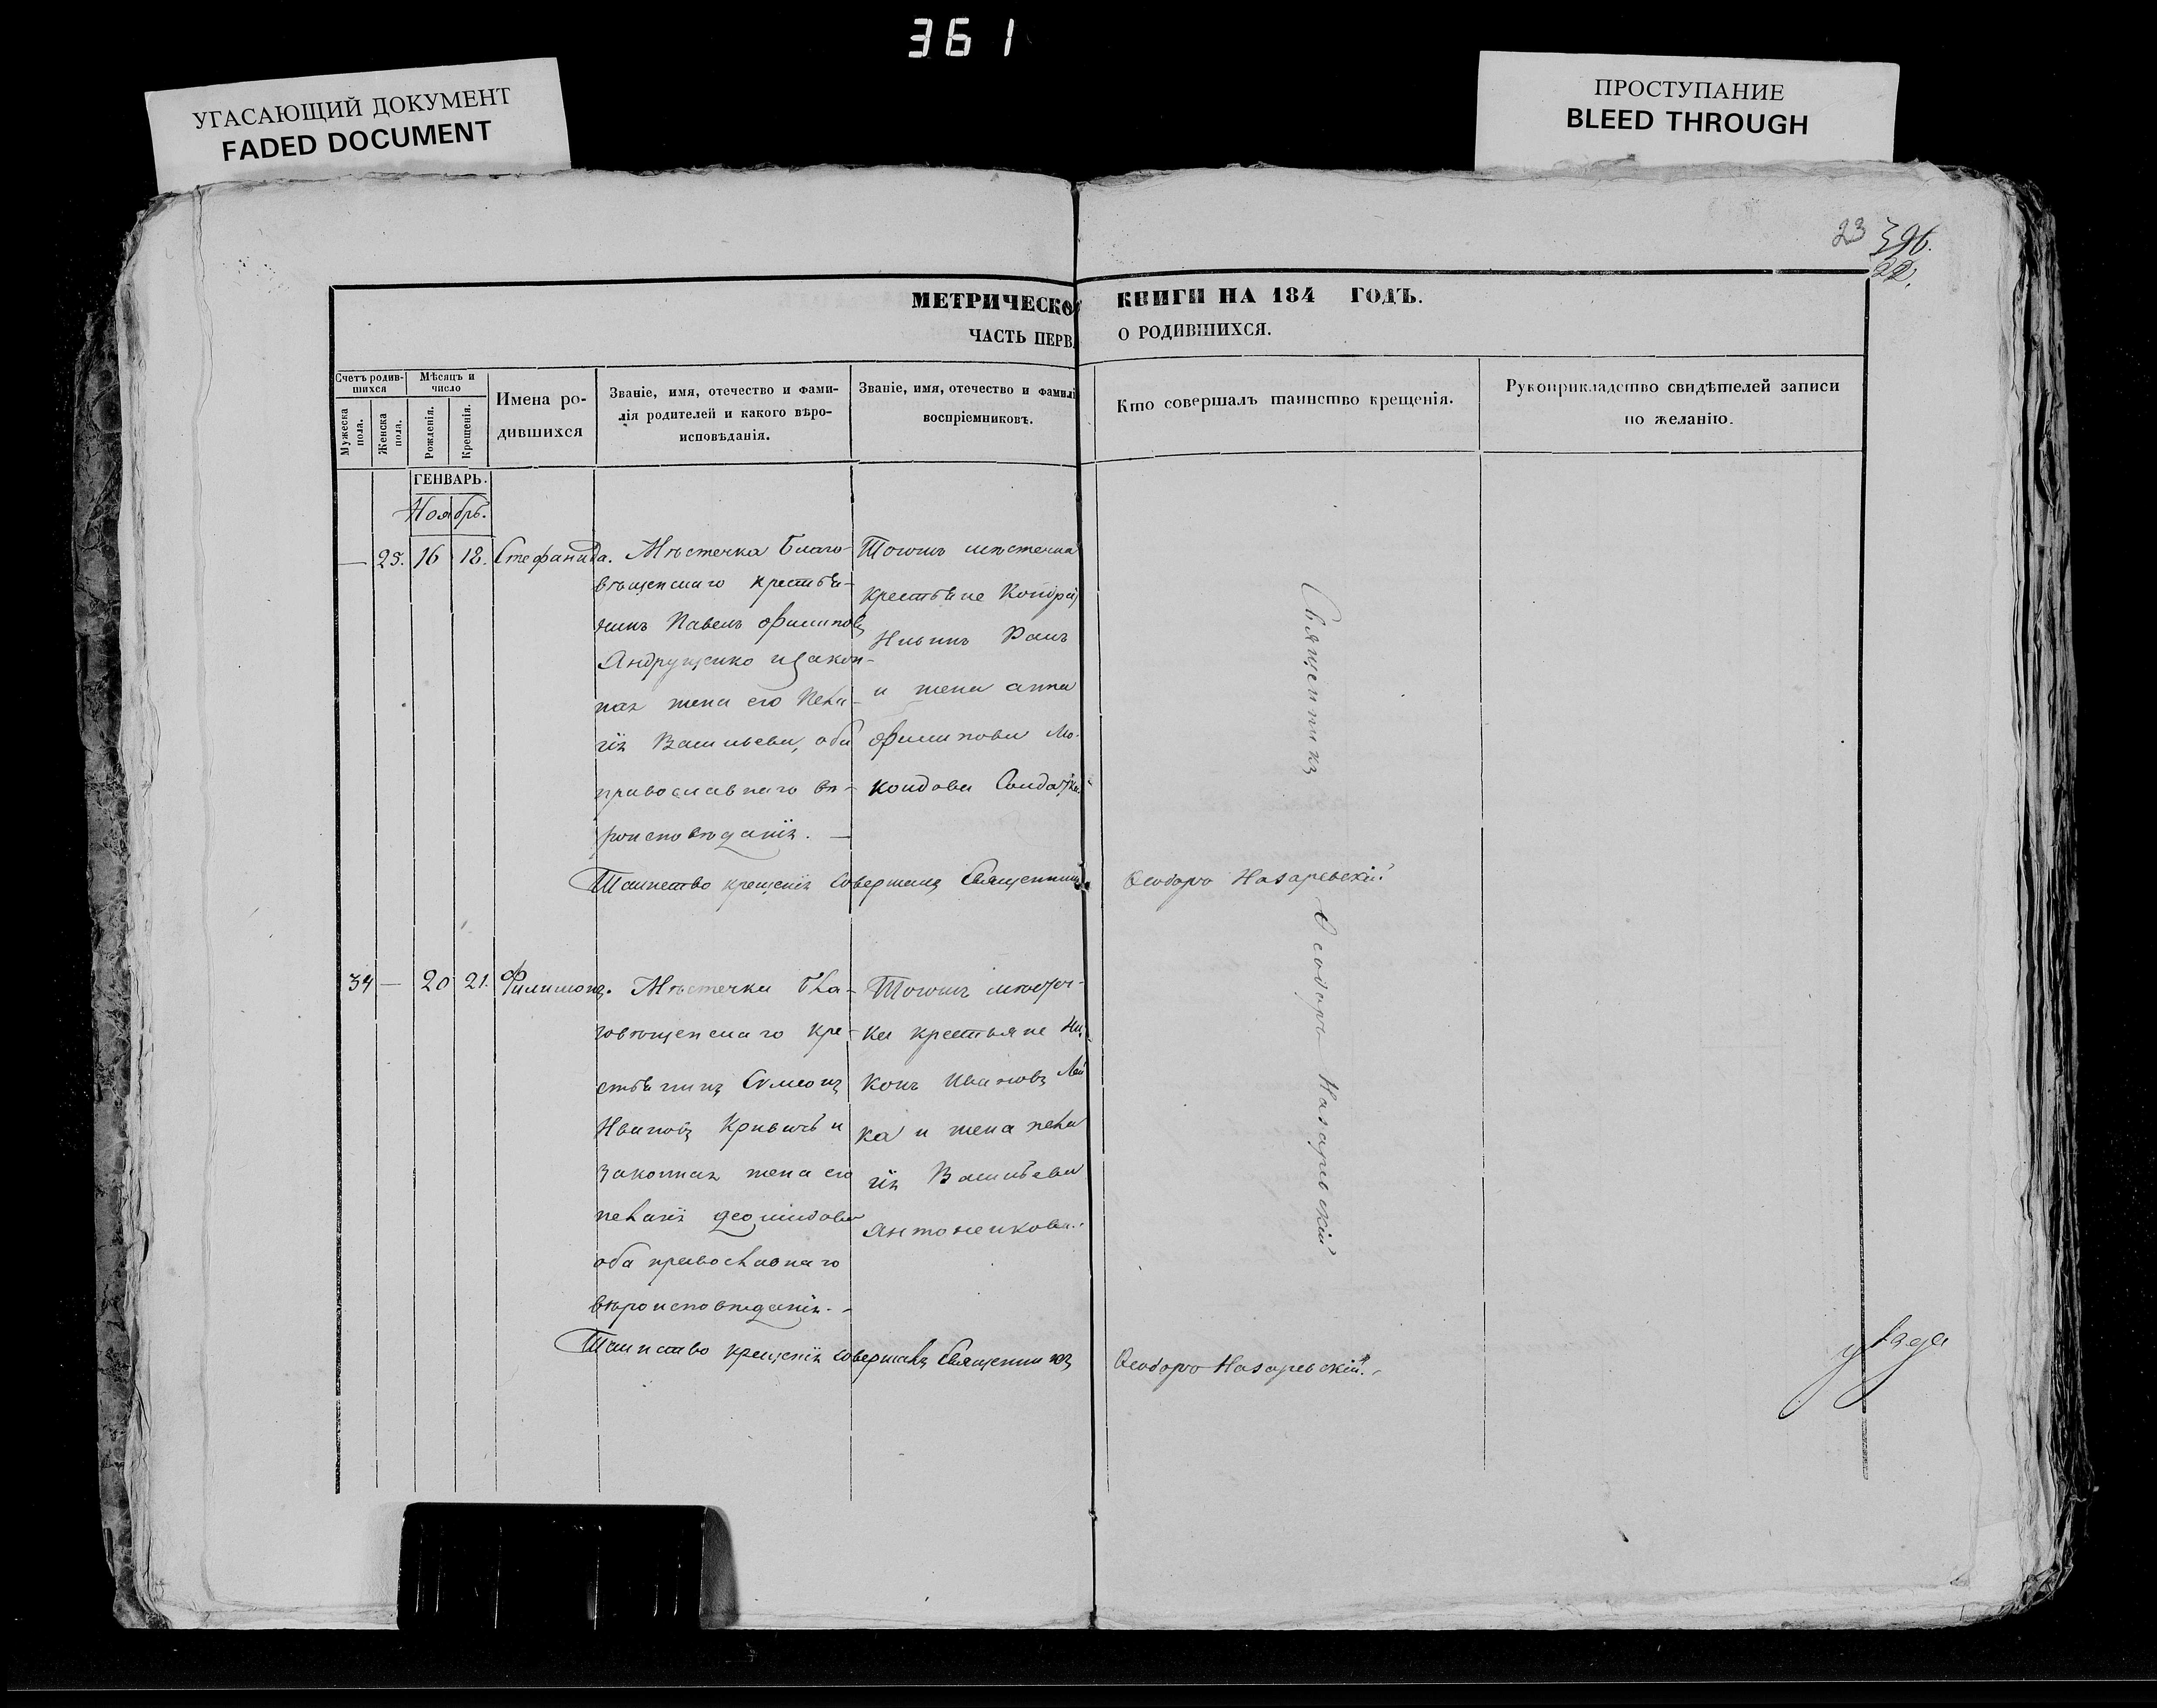 361
УГАСАЮЩИЙ ДОКУМЕНТ
FADED DOCUMENT
ПРОСТУПАНИЕ
BLEED THROUGH
23
396.
22.
МЕТРИЧЕСКО КНИГИ НА 184 ГОДЪ.
ЧАСТЬ ПЕРВ О РОДИВШИХСЯ.
Счетъ родив-
шихся
Мужеска пола.
Женска пола.
Мѣсяцъ и
число
Рожденія.
Крещенія.
Имена ро-
дившихся
Званіе, имя, отечество и фами-
лія родителей и какого вѣро-
исповѣданія.
Званіе, имя, отечество и фамилі
воспріемниковъ.
Кто совершалъ таинство крещенія.
Рукоприкладство свидѣтелей записи
по желанію.
ГЕНВАРЬ.
Ноябрь.
— 25. 16 18. Стефанида.
Мѣстечка Благо-
вѣщенскаго крестья-
нинъ Павелъ Филиповъ
Андрущенко и закон-
ная жена его Пела-
гія Васильева, оба
православнаго вѣ-
роисповѣданія. —
Тогожъ мѣстечка
крестьяне
и жена анна
Филипова
Таинство крещенія совершалъ Священникъ Ѳеодоръ Назаревскій.
Священникъ Ѳеодоръ Назаревскій
34 — 20 21. Филимонъ.
Мѣстечка Бла-
говѣщенскаго кре-
стьянинъ Сумеонъ
Ивановъ Кривичь и
законная жена его
пелагія
оба православнаго
вѣроисповѣданія. -
Тогожъ мѣстеч-
ка крестьяне Ни-
конъ Ивановъ
ка и жена пела
гія Васильева
Антоненкова.
Таинство крещенія совершалъ Священникъ Ѳеодоръ Назаревскій.